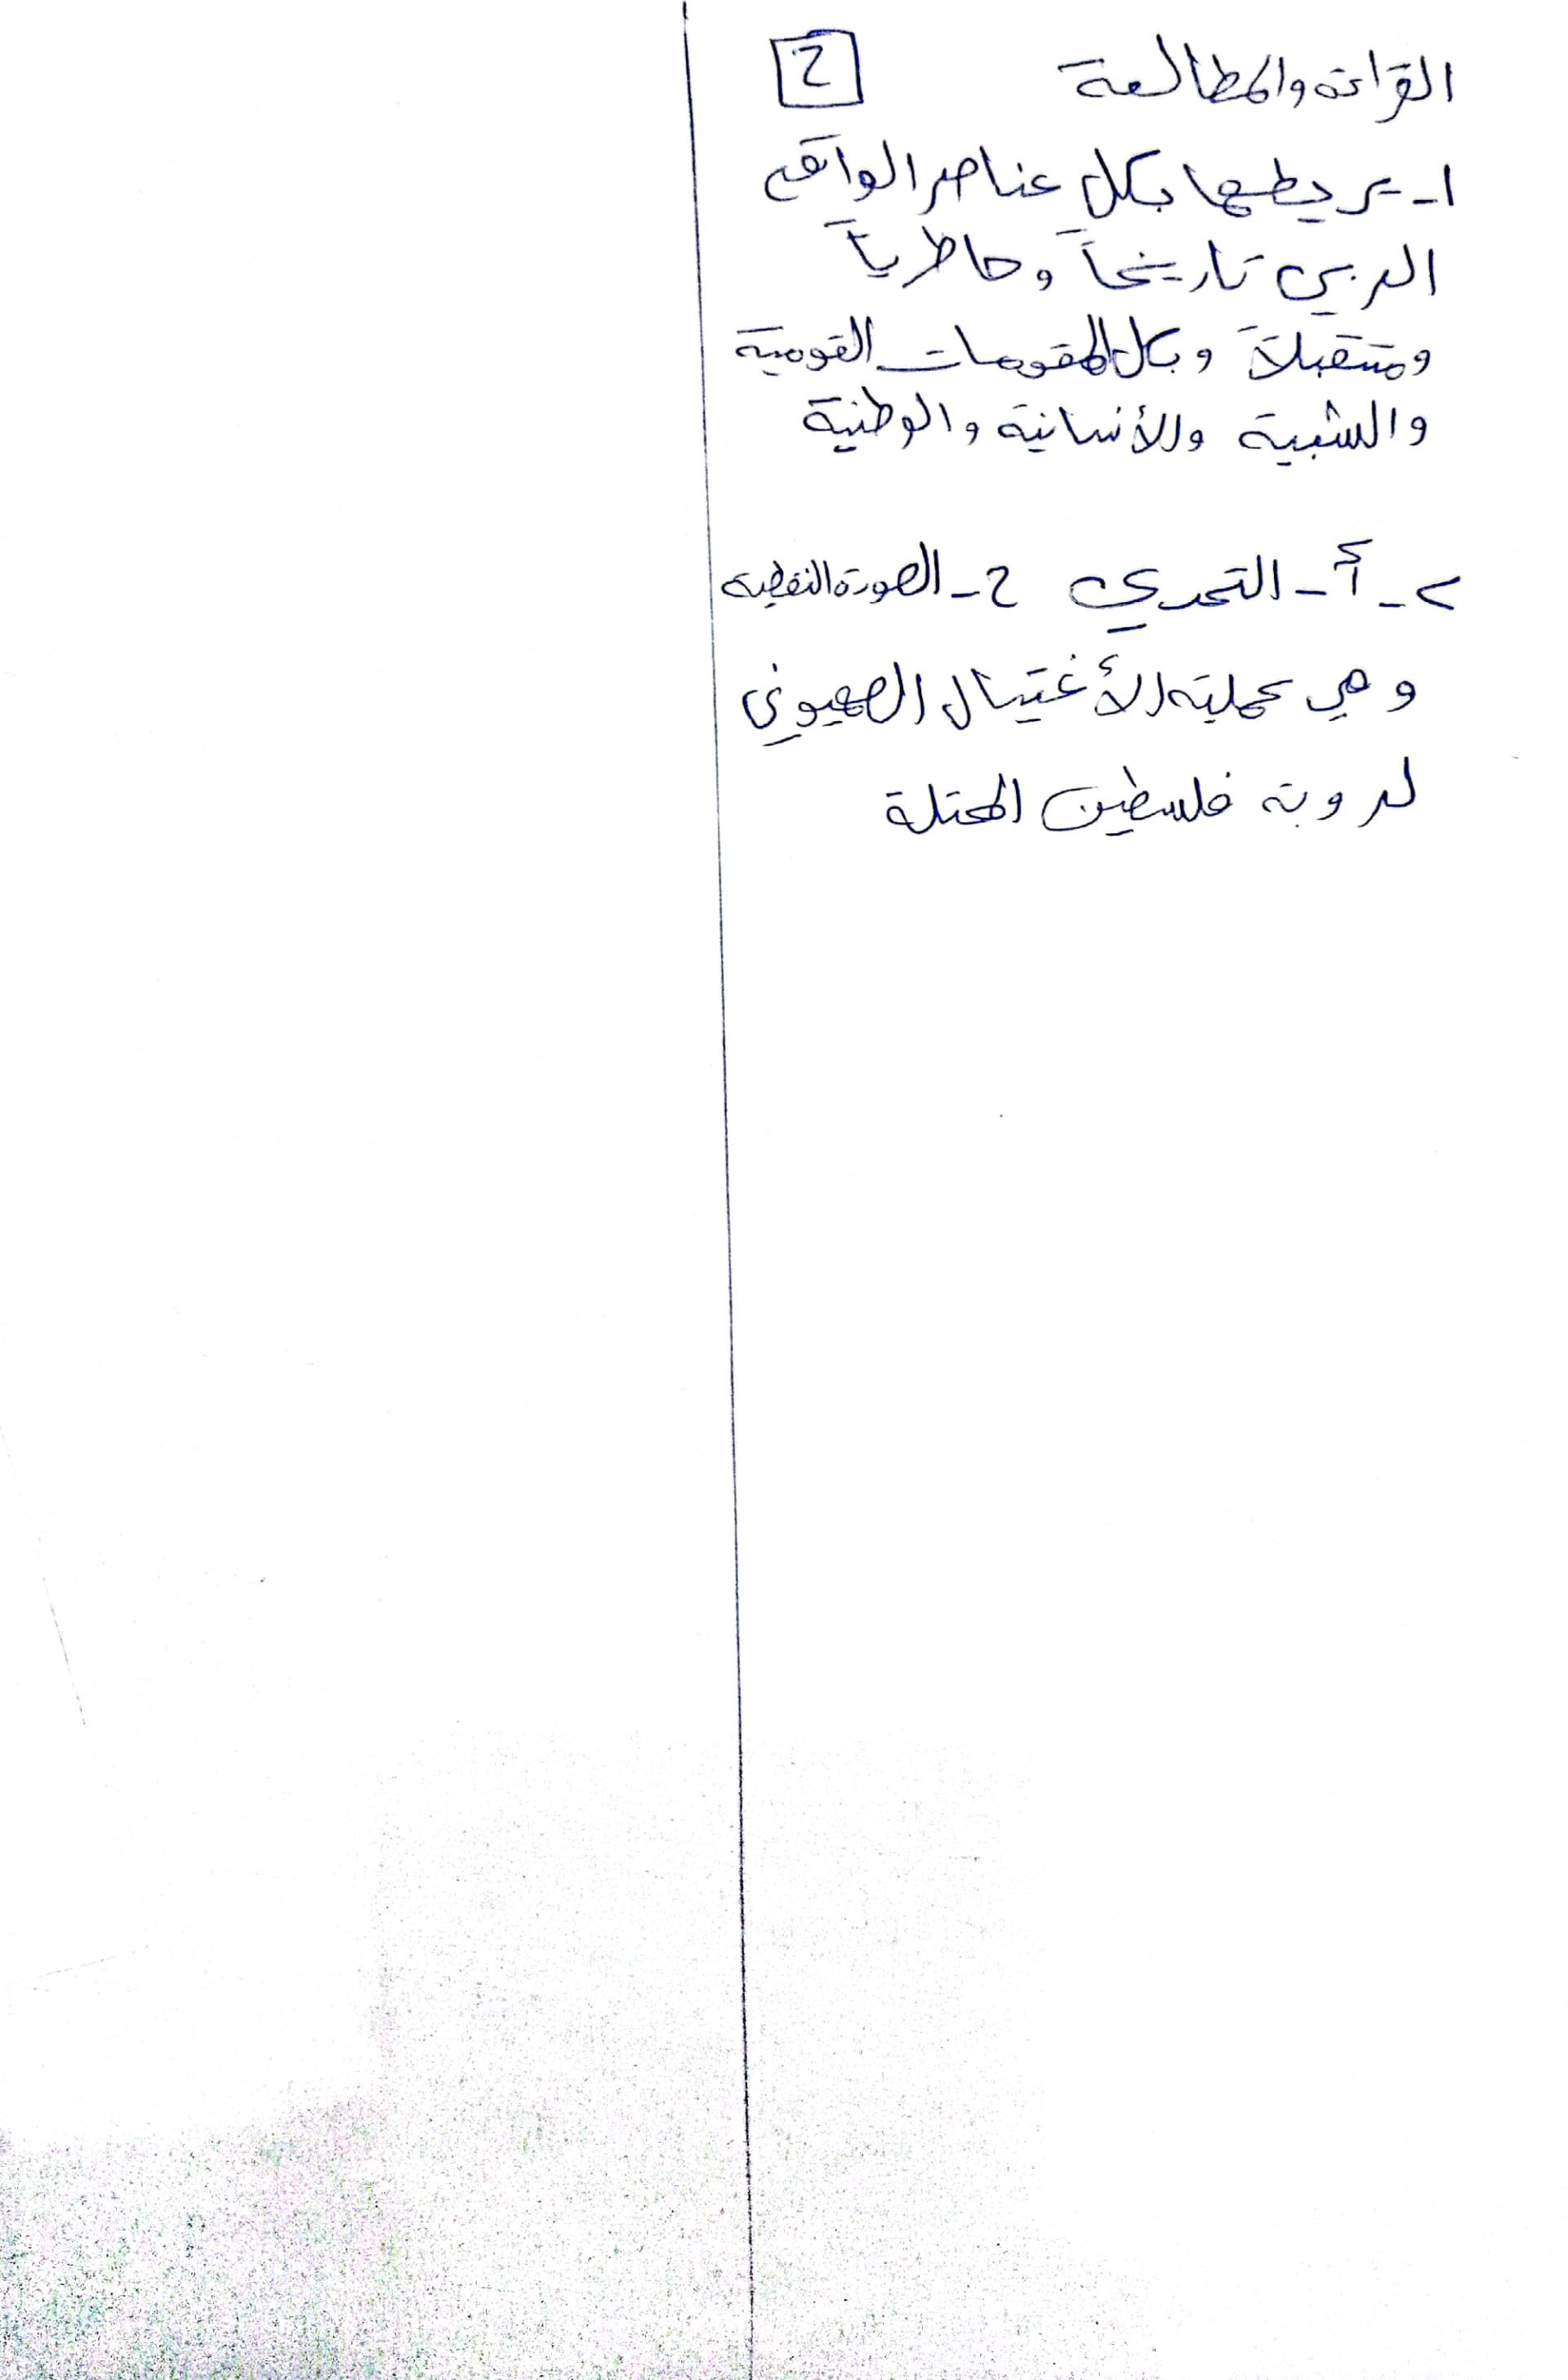 القراءة والمطالعة 2
١- يربطها بكل عناصر الواقع
العربي تاريخاً وحاطرياً
ومتقبلاً وبكل المقومات القومية
والشعبية والأنسانية والوطنية
٢- أ- التحدي ٢- الصورة النفطية
وهي عملية الأغتيال الصهيوني
لعروبة فلسطين المحتلة